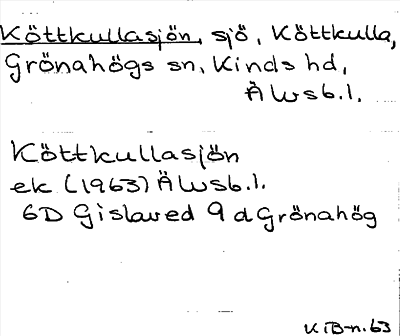 Köttkullasjön, sjö, Köttkulla,
Grönahögs sn, Kinds hd,
Älvsb.l.
Köttkullasjön
ek (1963) Älvsb.l.
6D Gislaved 9d Grönahög
K iB-n.63